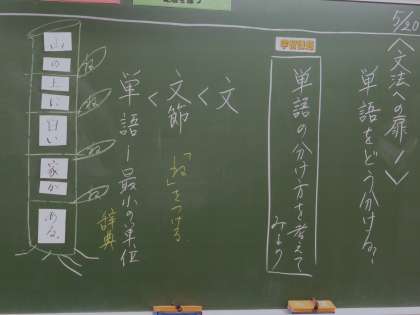 5/20
〈文法への扉1〉
単語をどう分ける?
学習課題
単語の分け方を考えてみよう
文
∨
文節
「ね」をつける
∨
単語ー最小の単位
辞典
ね
ね
ね
ね
山
の
上に
白い
家が
ある。